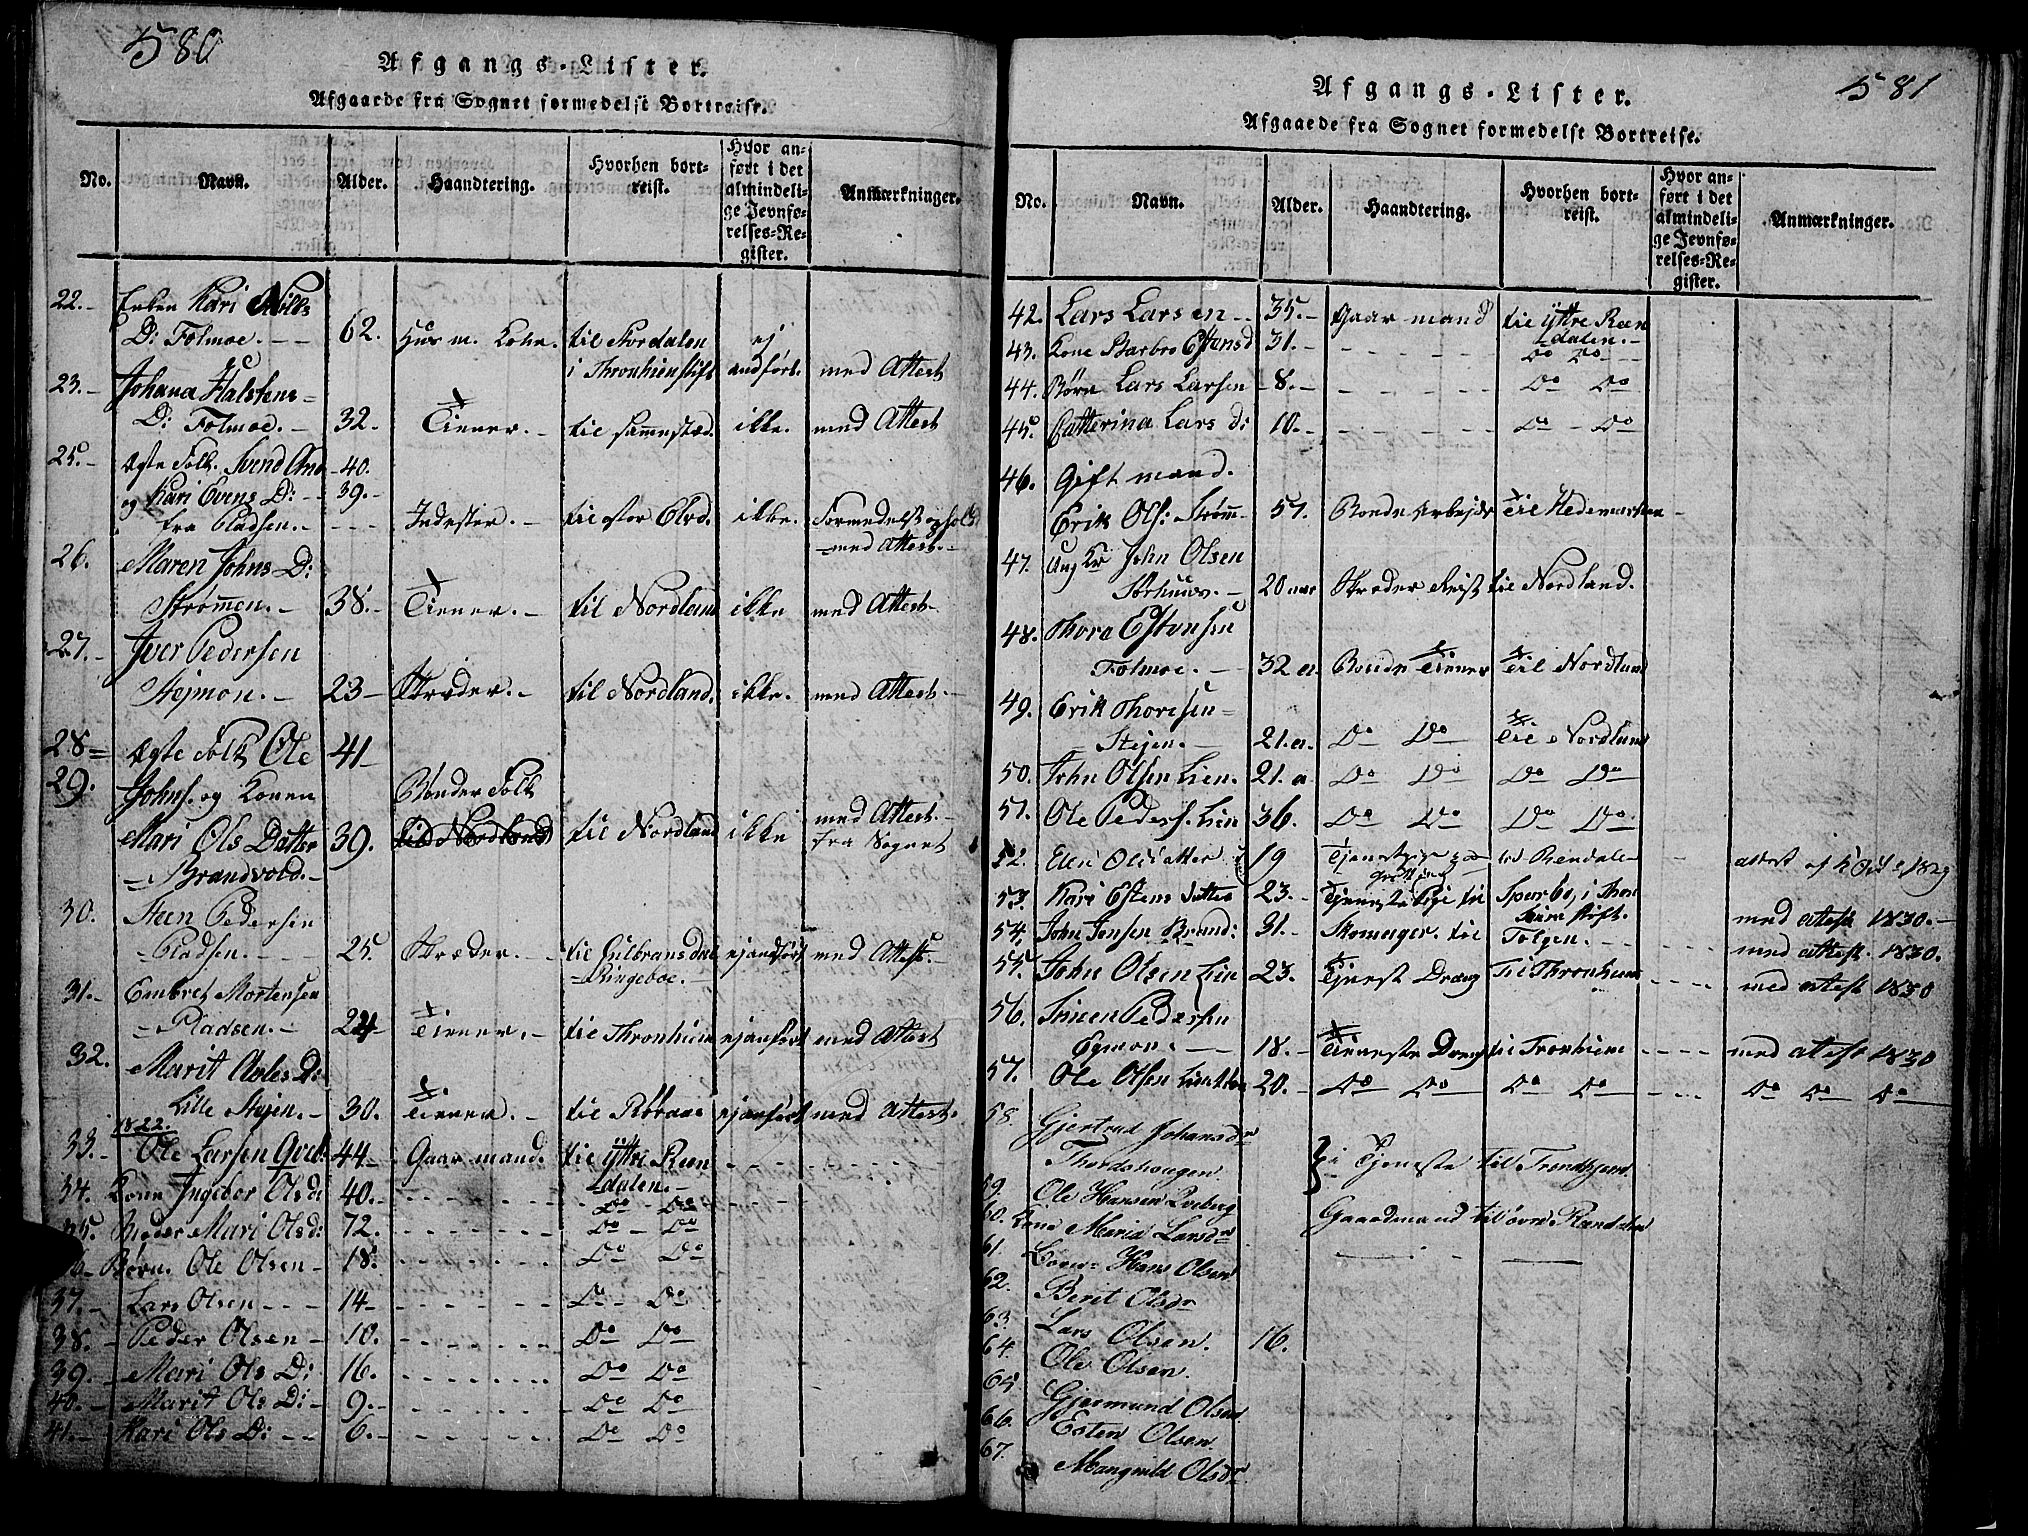 580
Afgangs-Lister.
Afgaaede fra Sognet formedelst Bortreise.
No. Navn. Alder. Haandtering. Hvorhen bortreist. Hvor anført i det almindelige Jevnførelses-Register. Anmærkninger.
22.- Enken Kari Nils
D: Folmoe. - - 62. Huus m. Kone. til Nordalen ej
i Thronhiemstift andført. med Attest
23.- Johana Halstens=
D: Folmoe. - 32. Tiener. - til sammested. ikke. med Attest
25.- Ægte Folk. Svend - 40.
og Kari Evens D: - 39.-
fra Pladsen. - - - - Inderster. - til stor Elvd. ikke. Formedelst ophold
- med Attest.-
26. Maren Johns D:
Strømmen. - 38. - Tiener. - til Nordland ikke med Attest-
27.- Iver Pedersen
Stejmon. - 23 - Skræder. - til Nordland. ikke. med Attest-
28= Ægte Folk Ole 41-
29. Johns. og Konen Bønder Folk
Mari Ols Datter 39. til Nordland til Nordland ikke med Attest-
fra Sognet
- Brandvold. -
30. Steen Pedersen
- Pladsen. - - - 25. Skræder. - til Gulbransdal ej andført med Attest.-
- Ringeboe. -
31.- Embret Mortensen
- Pladsen. - 24- Tiener. - til Thronhiem ej anført med Attest
32. Marit Ols D:
Lille Stejen. - 30. Tiener. - til Røraas ej anført med Attest.
1822.
33.- Ole Larsen 44- Gaar mand. til ÿttre Reen
dalen. -
34. Kone Ingebor Ols d: 40. - Do - Do
35. Moder Mari Ols d: 72. - Do - Do
36- Børn. Ole Olsen - 18. Do Do
37.- Lars Olsen - - - 14- Do - Do
38.- Peder Olsen - 10. Do Do
39.- Mari Ols D: 16. Do Do
40.- Marit Ols D: - 9.- Do Do
41.- Kari Ols D: - - 6.- Do Do
581
Afgangs-Lister.
Afgaaede fra Sognet formedelst Bortreise.
No. Navn. Alder. Haandtering. Hvorhen bortreist. Hvor anført i det almindelige Jevnførelses-Register. Anmærkninger.
42. Lars Larsen - - 35.- Gaar mand til ÿttre Reen
dalen. -
43. Kone Barbro Estensd 31.- Do Do
44. Børn Lars Larsen - 8.- Do Do
45. Catherina Lars D: 10.- Do - Do
46. Gift mand.
Erik Ols: Strømm- 57. Bonde Arbejder Til Hedemarken -
47. Ung Kr John Olsen
20 aar Skreder Reist til Nordland.
48. Thore Estensen
Folmoe. - 32 a. Bonde Tiener Til Nordland
49. Erik Thoresen -
Stejen. - 21. a. Do Do Til Nordland
50. John Olsen Lien. 21. a Do Do Do Do
51. Ole Peders. Lien 36. Do Do Do Do
52. Elen Olsdatter 19 til Rendalen attest af 1829
53. Kari Estens datter 23.- Tjeneste Pige til Sparbo, i Thron
hiem stift. med attest 1830.-
54. John Jonsen Brand: 31.- Skomager. til Tolgen. - - - - med attest. 1830.
55. John Olsen Lien 23. Tjenest Dreng Til Thronhiem - - - - med attest 1830
56. Simen Pedersen
Egmon. - 18.- Tieneste Dreng til Tronhiem - - - - med attest 1830
57. Ole Olsen 20.- Do Do Do Do - - - Do Do Do
58. Gjertrud Johansdr
Thordshaugen } i Tjeneste til Trondhjem
59. Ole Hansen
60. Kone Maria Larsdr Gaardmand til øvre Rendalen
61. Hans Olsen
62. Berit Olsdr
63. Lars Olsen. 16.
64. Ole Olsen.
65 Gjermund Olsen
66. Esten Olsen.
67. Mangnild Olsdr